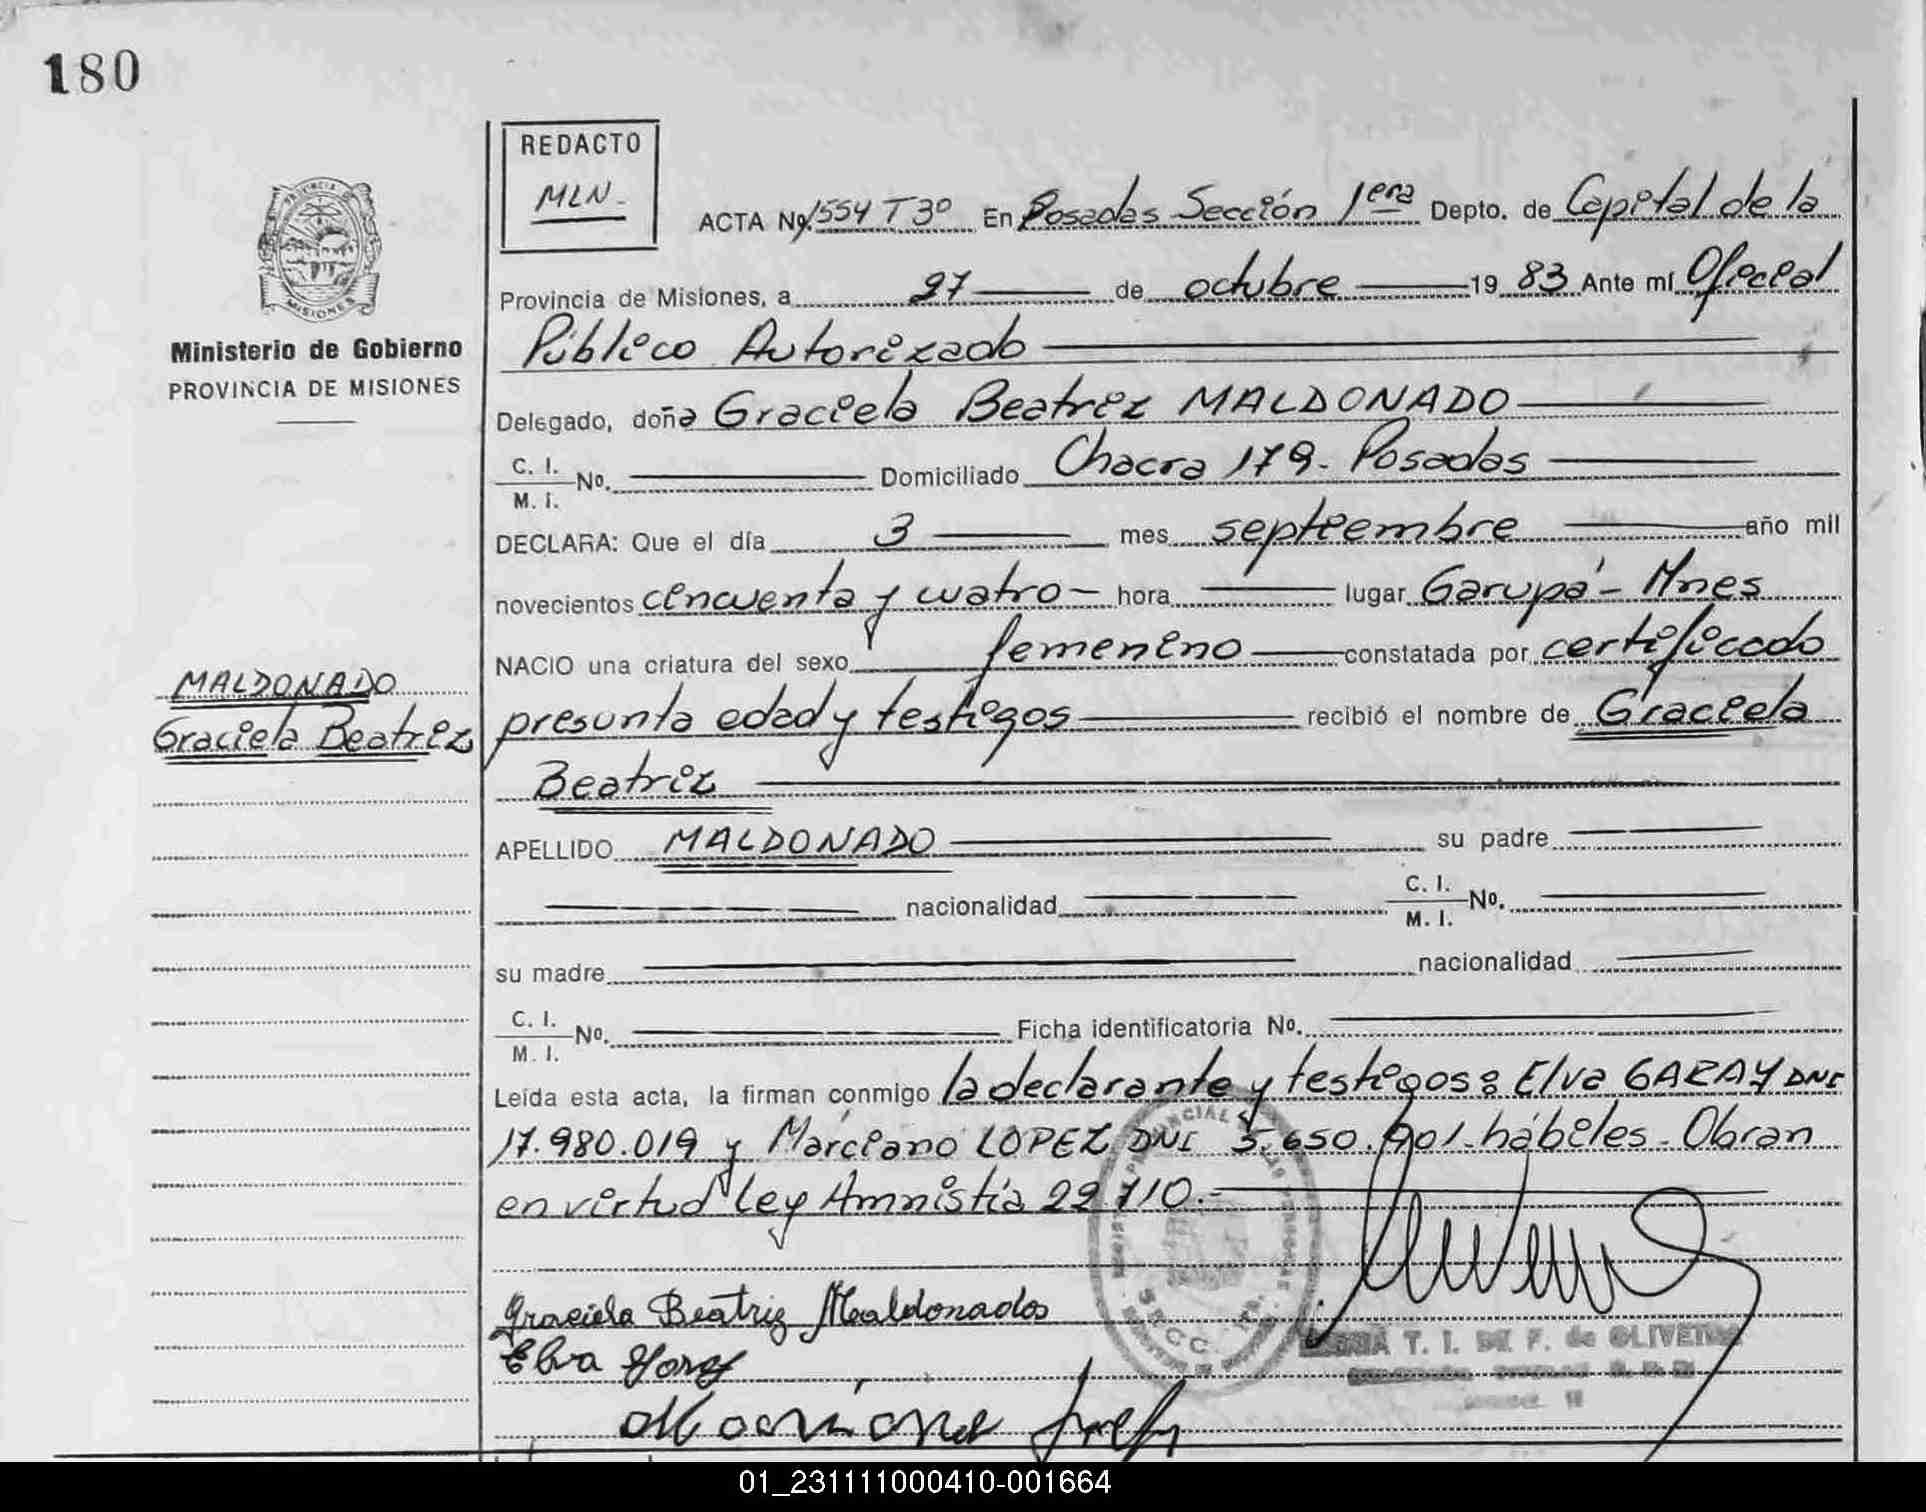 180
REDACTO
MLN.
ACTA Nº 1554 T 3º En Posadas Sección 1era Depto. de Capital de la
Provincia de Misiones, a 27 de octubre 19 83 Ante mí Oficial
Público Autorizado
Ministerio de Gobierno
PROVINCIA DE MISIONES
Delegado, doña Graciela Beatriz MALDONADO
C. I.
M. I. No. Domiciliado Chacra 179- Posadas
DECLARA: Que el día 3 mes septiembre año mil
novecientos cincuenta y cuatro - hora lugar Garupá - Mnes
NACIO una criatura del sexo femenino constatada por certificado
MALDONADO
Graciela Beatriz
presunta edad y testigos recibió el nombre de Graciela
Beatriz
APELLIDO MALDONADO su padre
nacionalidad C. I.
M. I. No.
su madre nacionalidad
C. I.
M. I. No. Ficha identificatoria No.
Leída esta acta, la firman conmigo la declarante y testigos: Elva GARAY DNI
17.980.019 y Marciano LOPEZ DNI 5.650.901-hábiles- Obran
en virtud ley Amnistía 22.710.-
Graciela Beatriz Maldonados
Elva
T. I. DE F. de OLIVEIRA
01_231111000410-001664